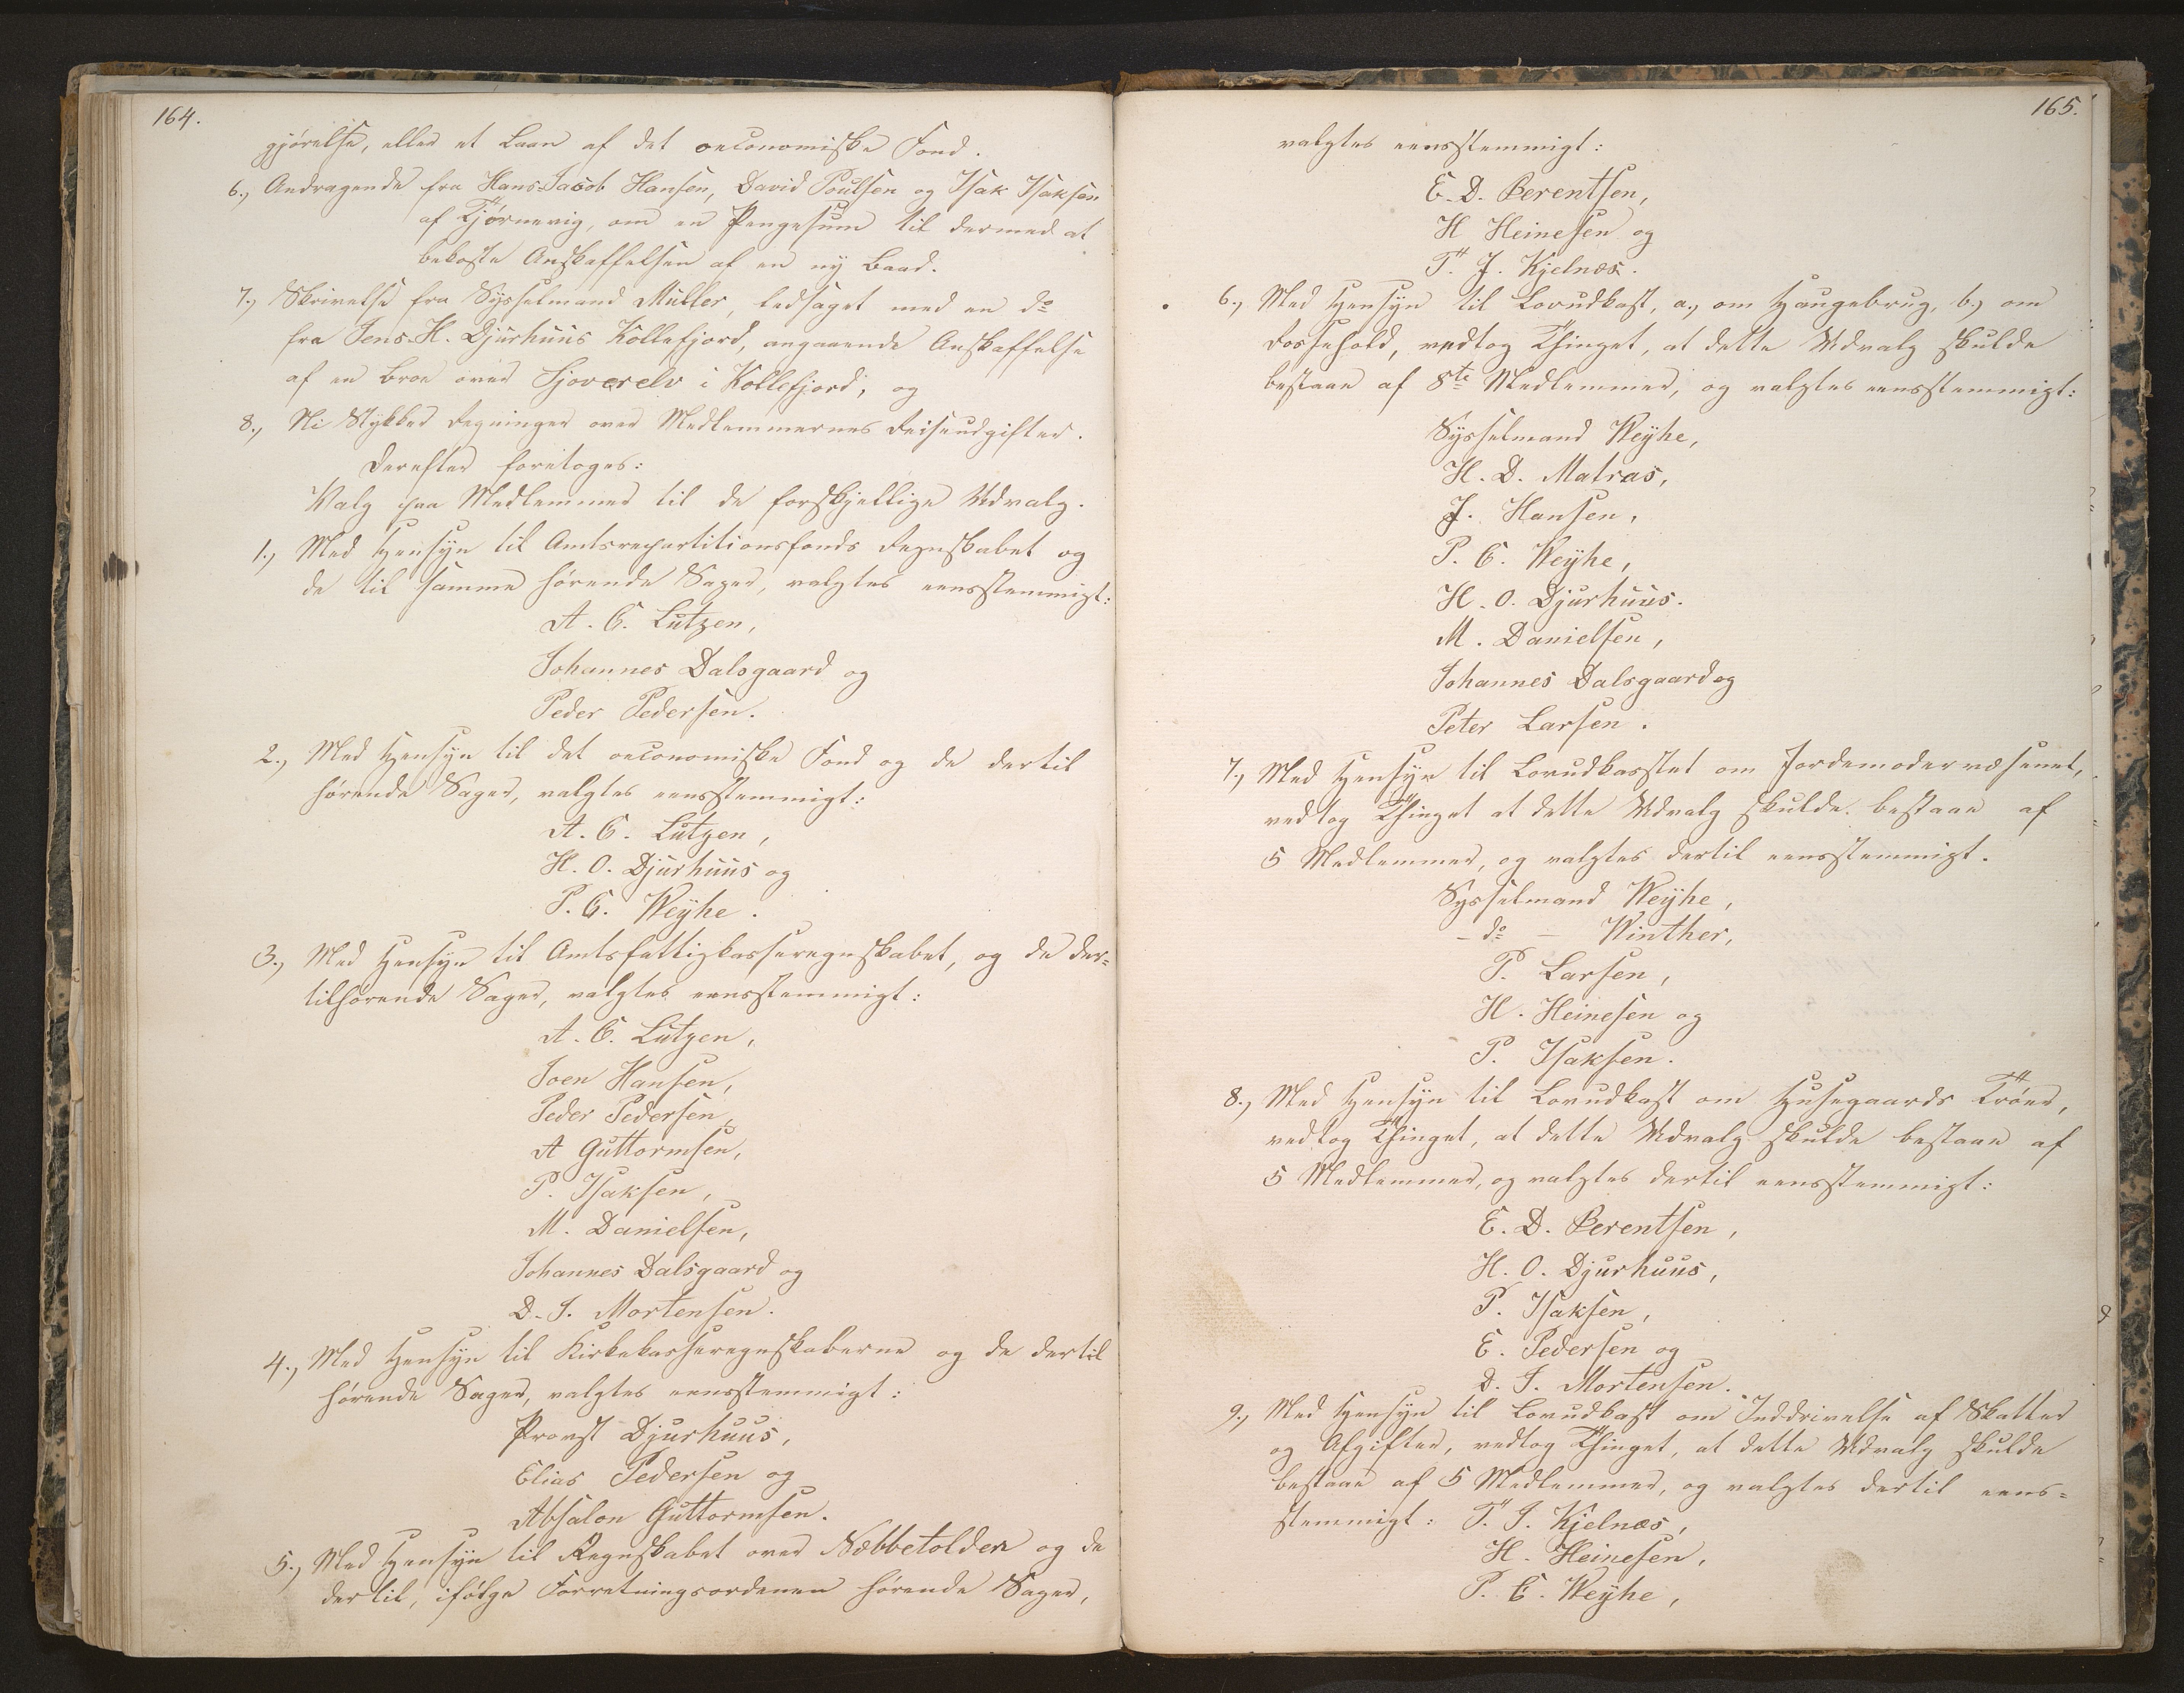 164.
gjørelse, eller et Laan af det oeconomiske Fond.
6., Andragende fra Hans Jacob Hansen, David Poulsen og Isak Isaksen
af Tjørnevig, om en Pengesum til dermed at
bekoste Anskaffelsen af en ny Baad.
7., Skrivelse fra Sysselmand Müller, ledsaget med en do
fra Jens H. Djurhuus Kollefjord, angaaende Anskaffelse
af en Broe over Sjoverelv i Kollefjord, og
8., Ni Stykker Regninger over Medlemmernes Reiseudgifter.
Derefter foretoges:
Valg paa Medlemmer til de forskjellige Udvalg.
1., Med Hensyn til Amtsrepartitionsfonds Regnskabet og
de til samme hørende Sager, valgtes eensstemmigt:
A. C. Lützen,
Johannes Dalsgaard og
Peder Pedersen.
2., Med Hensyn til det oeconomiske Fond og de dertil
hørende Sager, valgtes eensstemmigt:
A. C. Lützen,
H. O. Djurhuus og
P. C. Weyhe.
3., Med Hensyn til Amtsfattigkasseregnskabet, og de der=
tilhørende Sager, valgtes eensstemmigt:
A. C. Lützen,
Joen Hansen,
Peder Pedersen,
A Guttormsen,
P. Isaksen,
M. Danielsen,
Johannes Dalsgaard og
D. J. Mortensen.
4., Med Hensyn til Kirkekasseregnskaberne og de dertil
hørende Sager, valgtes eensstemmigt:
Provst Djurhuus,
Elias Pedersen og
Absalon Guttormsen.
5., Med Hensyn til Regnskabet over Næbbetolden og de
dertil, ifølge Forretningsordenen hørende Sager,
165.
valgtes eensstemmigt:
E. D. Berentsen,
H Heinesen og
T. J. Kjelnæs.
6., Med Hensyn til Lovudkast, a., om Haugebrug, b., om
Kossehold, vedtog Thinget, at dette Udvalg skulde
bestaae af 8te Medlemmer, og valgtes eensstemmigt:
Sysselmand Weyhe,
H. D. Matras,
J. Hansen,
P. C. Weyhe,
H. O. Djurhuus.
M. Danielsen,
Johannes Dalsgaard og
Peter Larsen.
7., Med Hensyn til Lovudkastet om Jordemodervæsenet,
vedtog Thinget at dette Udvalg skulde bestaae af
5 Medlemmer, og valgtes dertil eensstemmigt.
Sysselmand Weyhe,
– do – Winther,
P. Larsen,
H. Heinesen og
P. Isaksen.
8., Med Hensyn til Lovudkast om Husegaards Trøer,
vedtog Thinget, at dette Udvalg skulde bestaae af
5 Medlemmer, og valgtes dertil eensstemmigt:
E. D. Berentsen,
H. O. Djurhuus,
P. Isaksen,
E. Pedersen og
D. J. Mortensen.
9., Med Hensyn til Lovudkast om Inddrivelse af Skatter
og Afgifter, vedtog Thinget, at dette Udvalg skulde
bestaae af 5 Medlemmer, og valgtes dertil eens=
stemmigt: T. J. Kjelnæs,
H. Heinesen,
P. C. Weyhe,